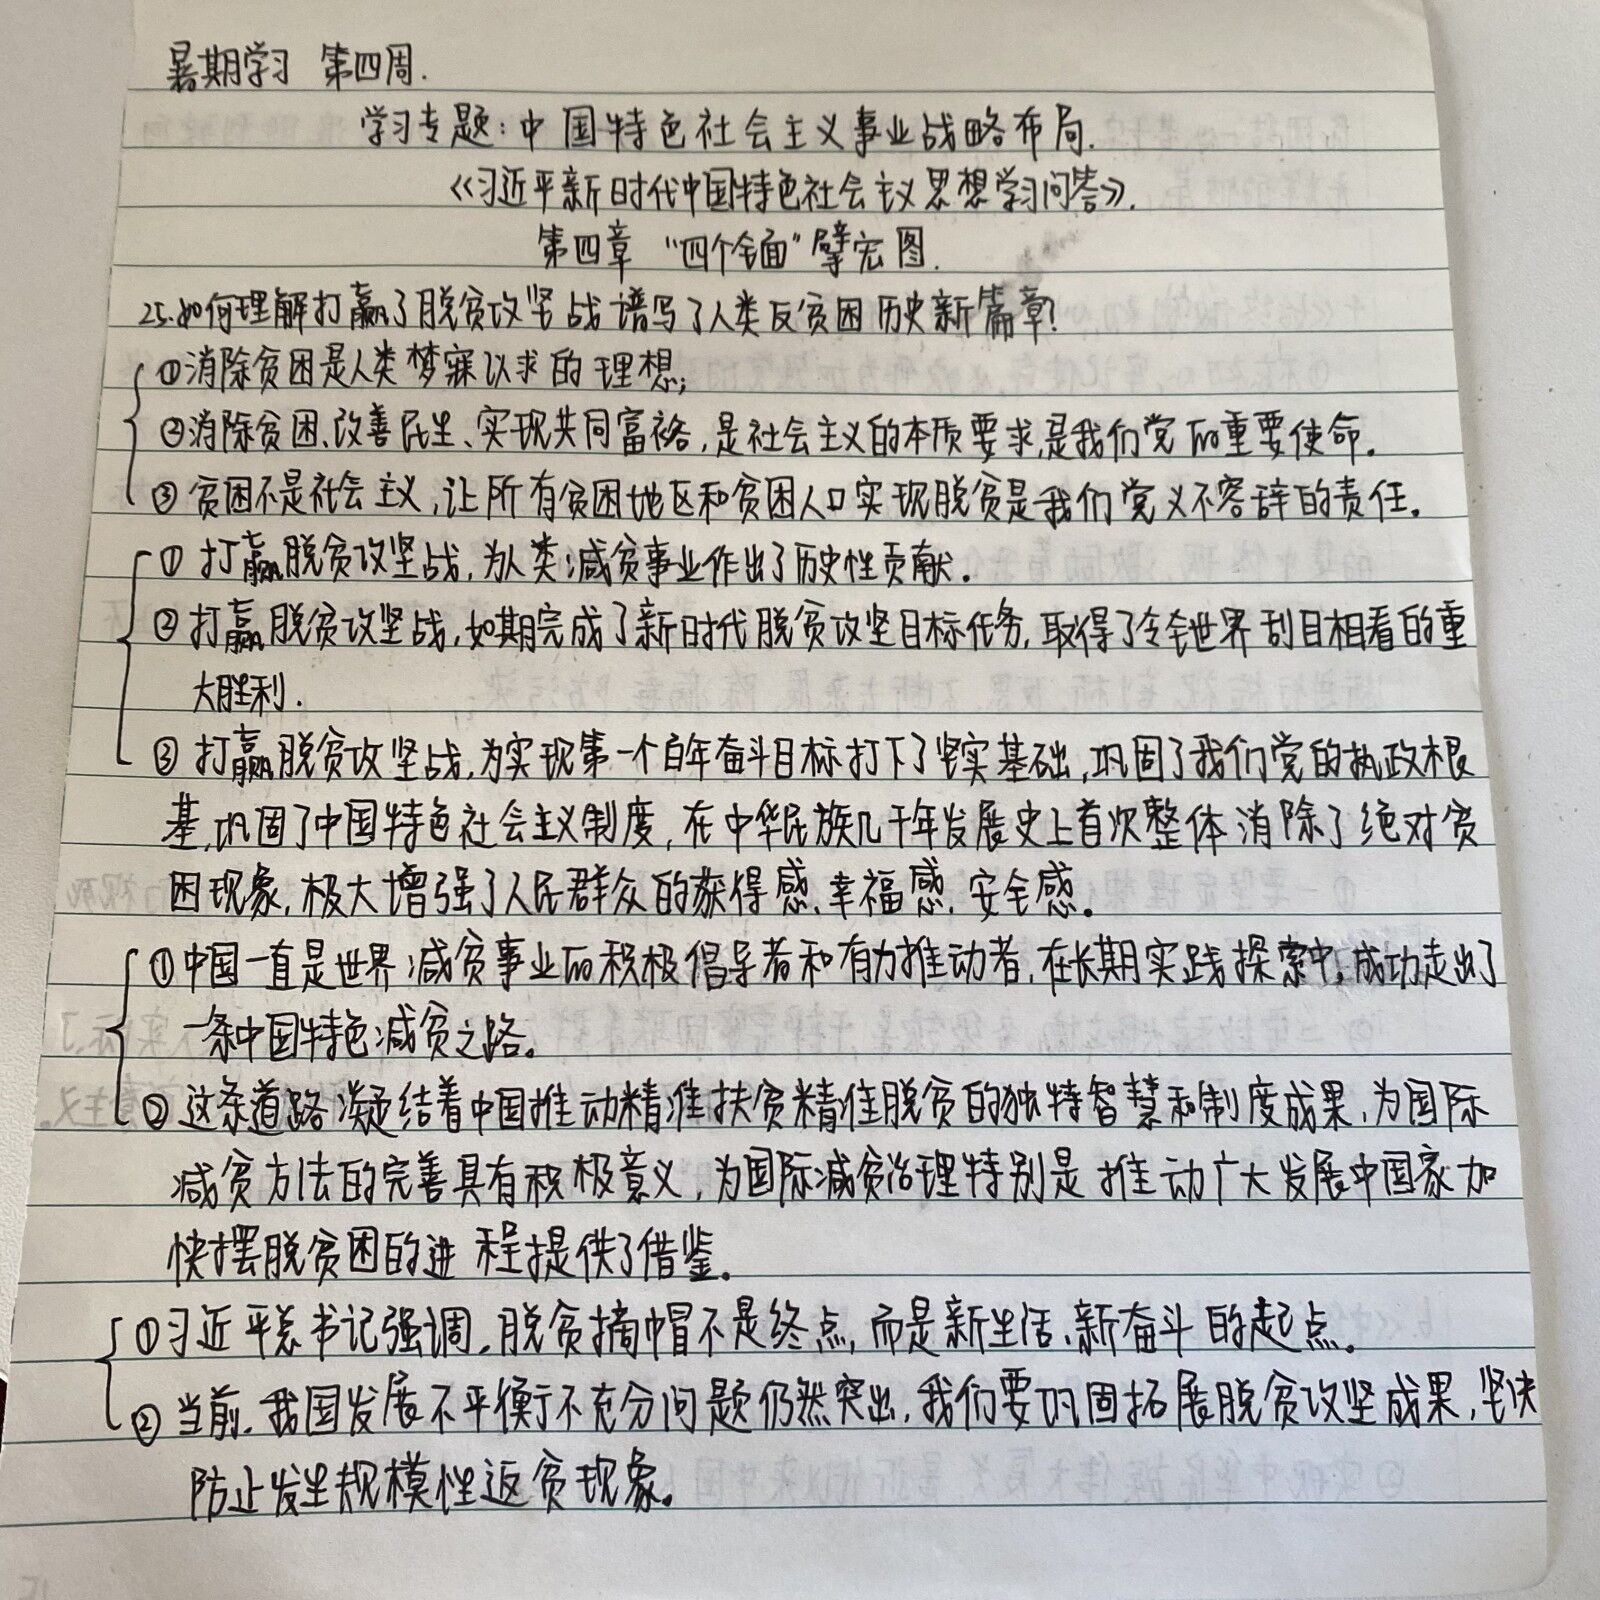 暑期学习 第四周.
学习专题:中国特色社会主义事业战略布局.
《习近平新时代中国特色社会主义思想学习问答》.
第四章 “四个全面”擘宏图.
25.如何理解打赢了脱贫攻坚战谱写了人类反贫困历史新篇章?
①消除贫困是人类梦寐以求的理想;
②消除贫困、改善民生、实现共同富裕,是社会主义的本质要求,是我们党的重要使命.
③贫困不是社会主义,让所有贫困地区和贫困人口实现脱贫是我们党义不容辞的责任。
①打赢脱贫攻坚战,为人类减贫事业作出了历史性贡献。
②打赢脱贫攻坚战,如期完成了新时代脱贫攻坚目标任务,取得了令全世界刮目相看的重
大胜利.
③打赢脱贫攻坚战,为实现第一个百年奋斗目标打下了坚实基础,巩固了我们党的执政根
基,巩固了中国特色社会主义制度,在中华民族几千年发展史上首次整体消除了绝对贫
困现象,极大增强了人民群众的获得感、幸福感、安全感。
①中国一直是世界减贫事业的积极倡导者和有力推动者,在长期实践探索中,成功走出了
一条中国特色减贫之路。
②这条道路凝结着中国推动精准扶贫精准脱贫的独特智慧和制度成果,为国际
减贫方法的完善具有积极意义,为国际减贫治理特别是推动广大发展中国家加
快摆脱贫困的进程提供了借鉴。
①习近平总书记强调,脱贫摘帽不是终点,而是新生活、新奋斗的起点。
②当前,我国发展不平衡不充分问题仍然突出,我们要巩固拓展脱贫攻坚成果,坚决
防止发生规模性返贫现象。